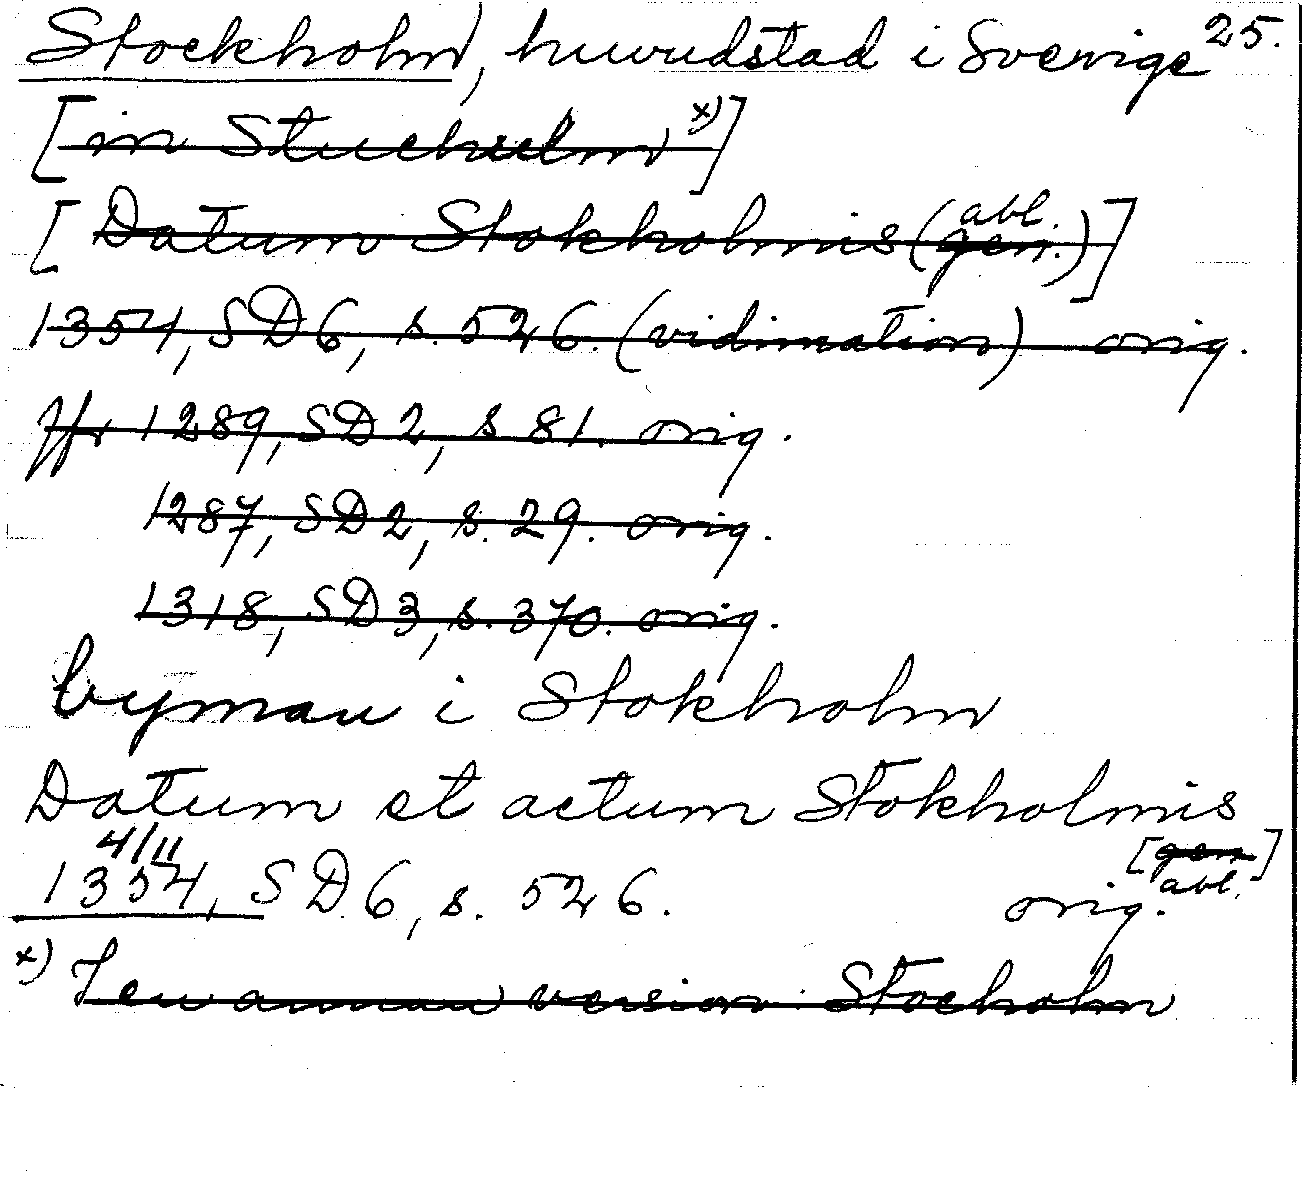 Stockholm, huvudstad i Sverige 25.
[in Stuchulm x)]
[Datum Stokholmis (gen. abl.)]
1354, SD 6, s. 526. (vidimation) orig.
Jfr 1289, SD 2, s. 81. orig.
1287, SD 2, s. 29. orig.
1318, SD 3, s. 370. orig.
byman i Stokholm
Datum et actum Stokholmis
4/11 [gen abl.]
1354, SD 6, s. 526. orig.
x) I en annan version Stocholm